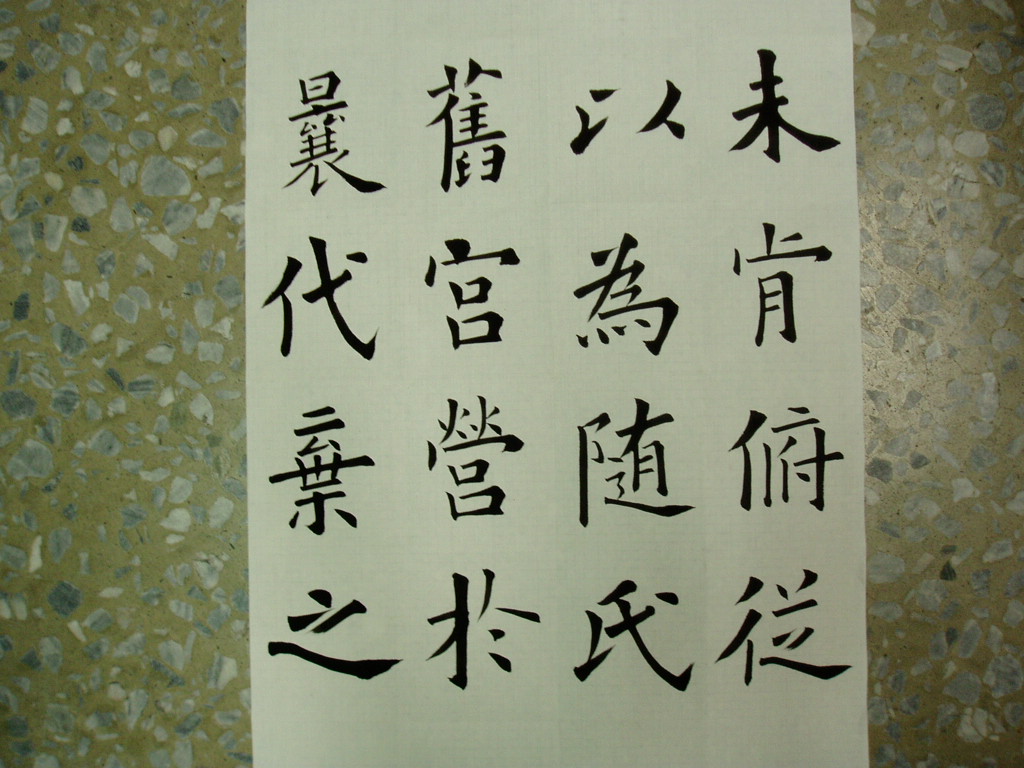 未肯俯従
以為随氏
舊宮營於
曩代棄之